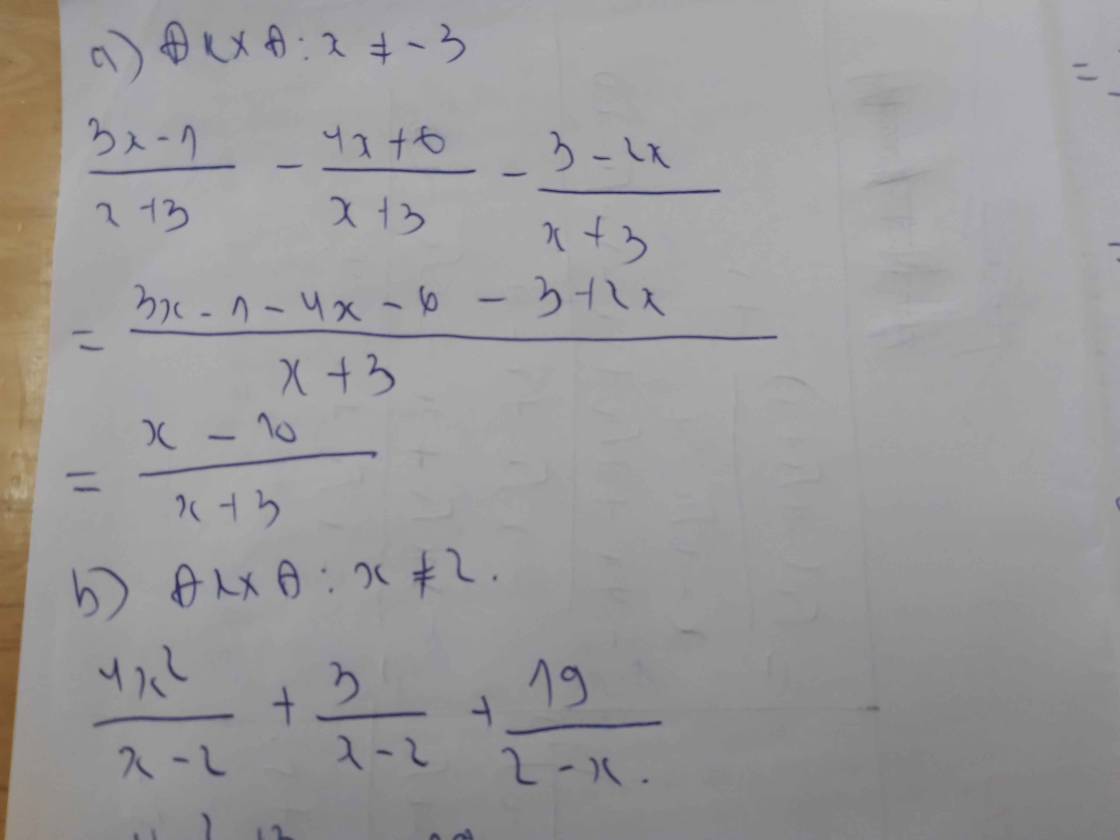 a) ĐKXĐ: x ≠ -3
(3x - 1)/(x + 3) - (4x + 6)/(x + 3) - (3 - 2x)/(x + 3)
= (3x - 1 - 4x - 6 - 3 + 2x)/(x + 3)
= (x - 10)/(x + 3)
b) ĐKXĐ: x ≠ 2.
4x²/(x - 2) + 3/(x - 2) + 19/(2 - x).